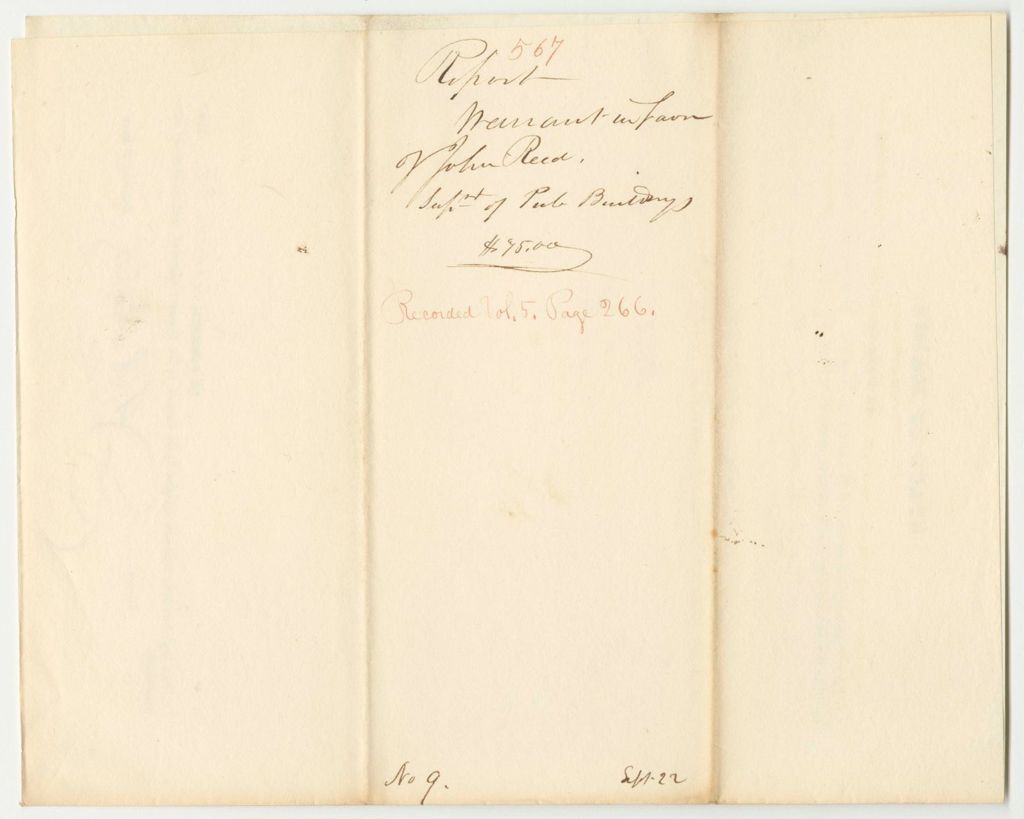 567
Report
Warrant in favor
of John Reed.
Supt of Pub Buildings
$75.00
Recorded Vol. 5. Page 266.
No 9.
Sept 22